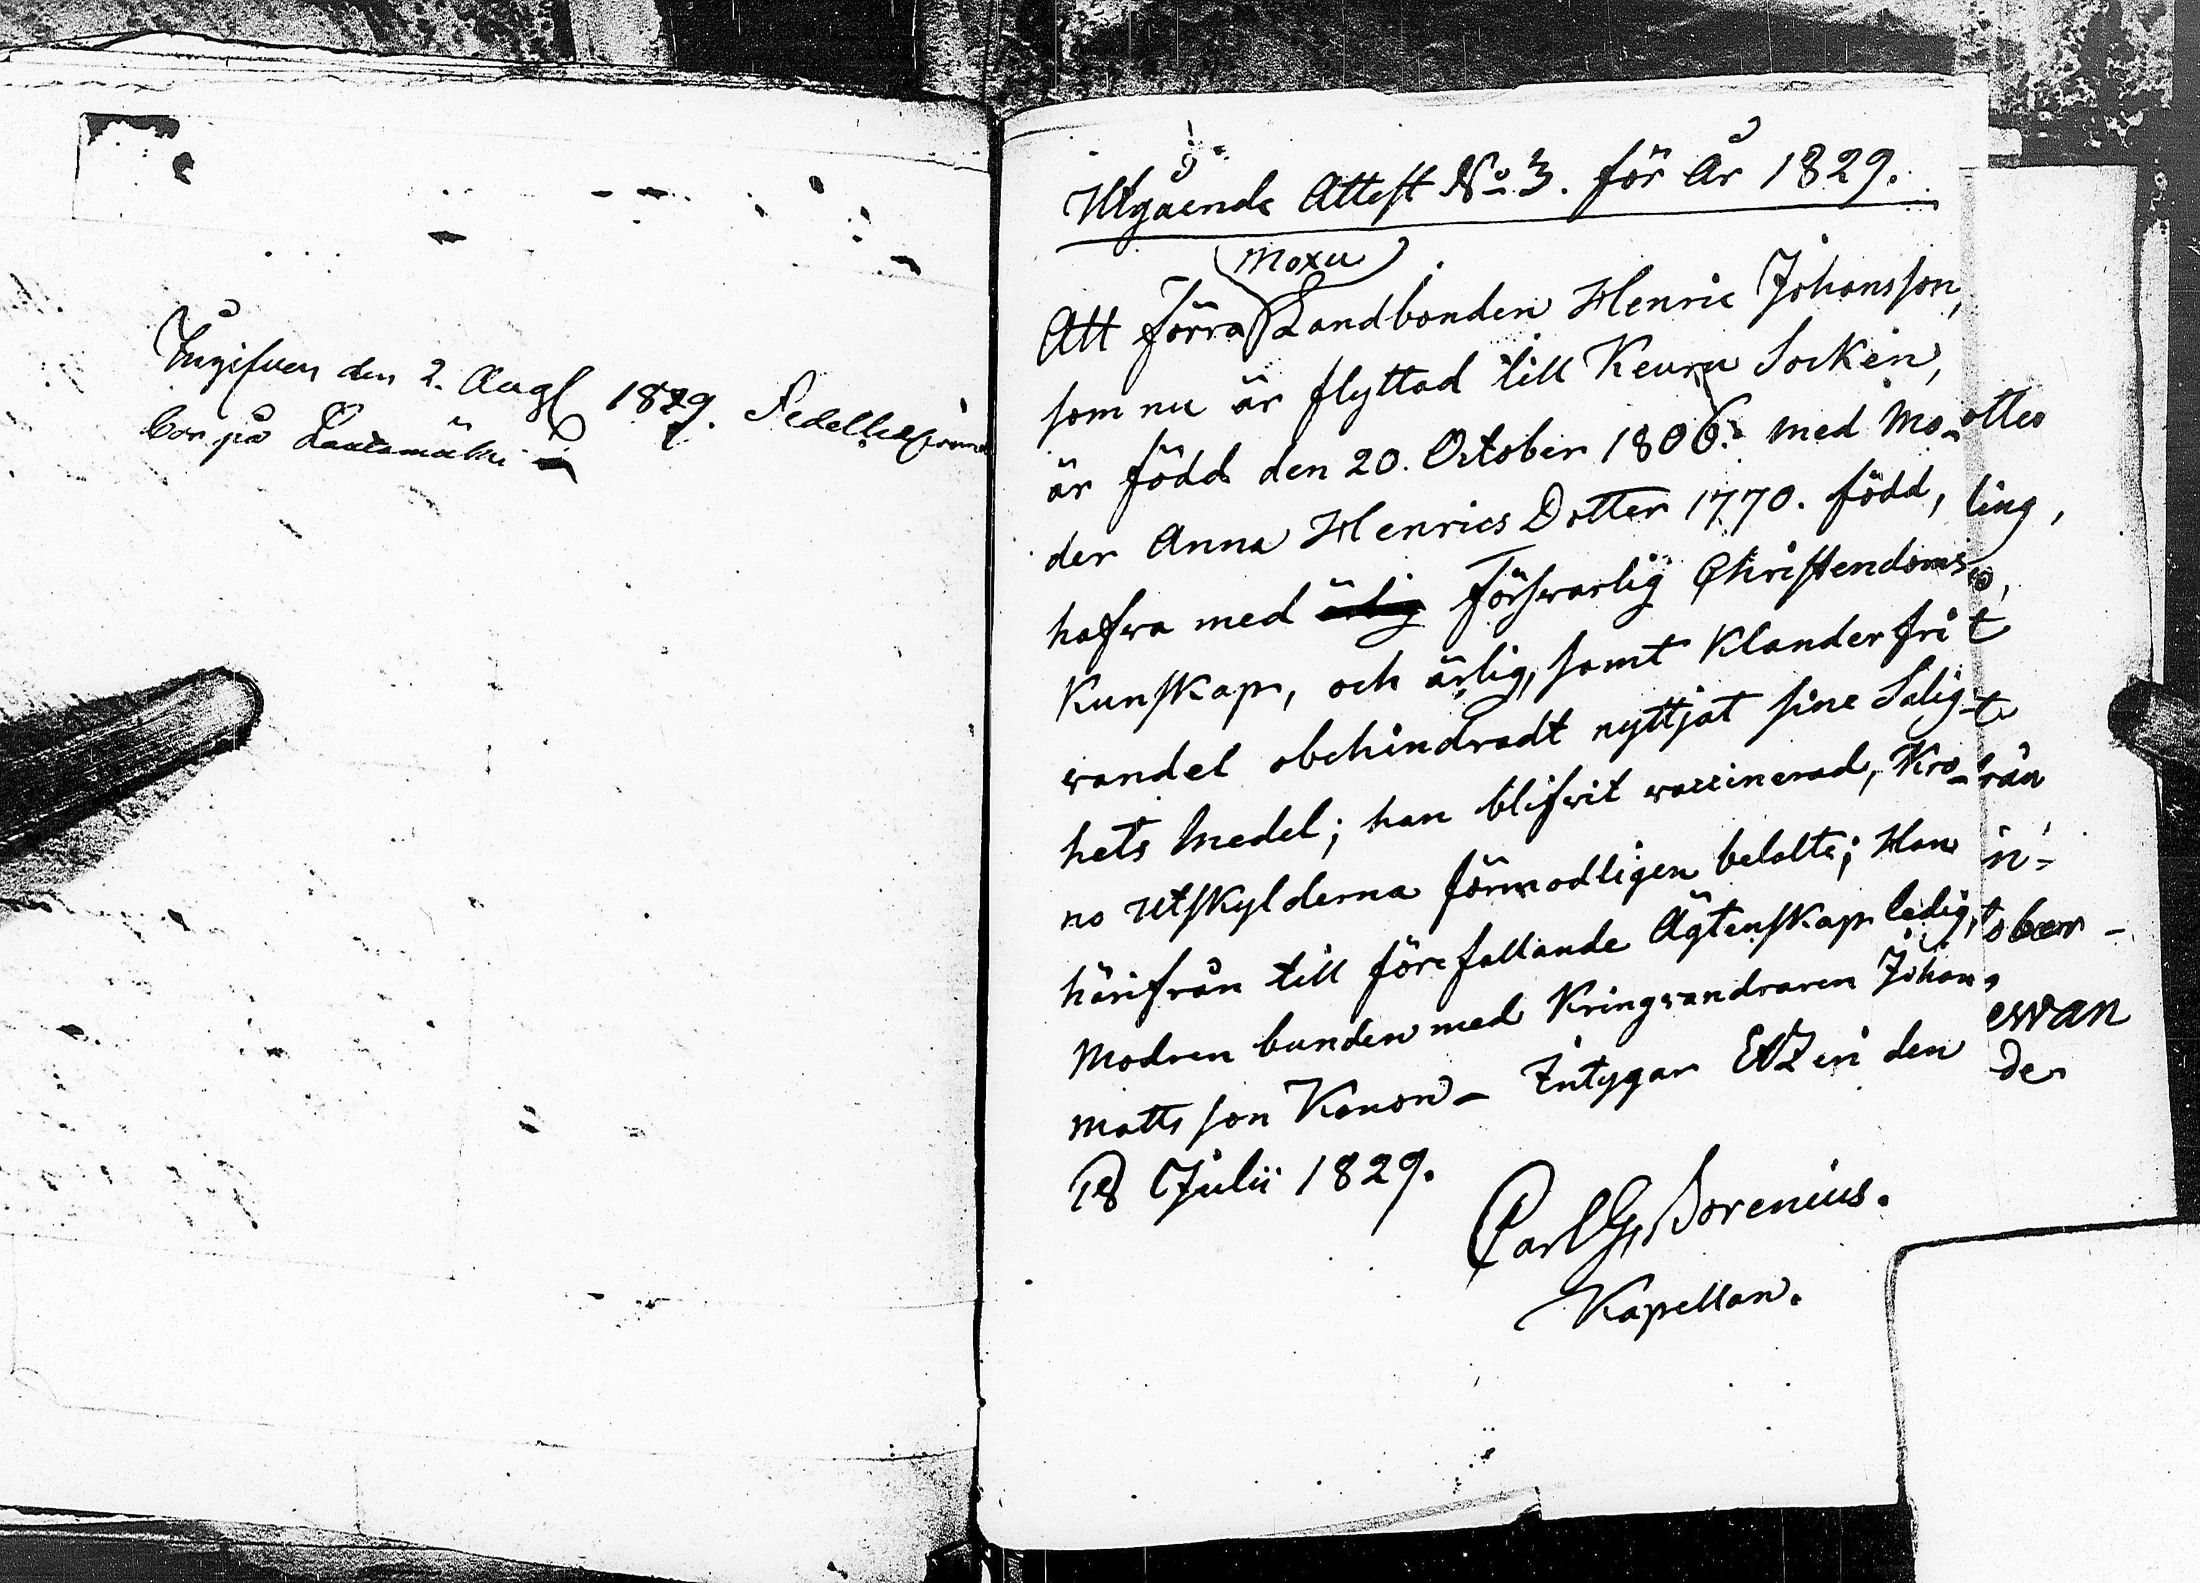 Ingifven den 2. Aug 1829.
bor på Lautamäki
Utgående Attest No 3. för År 1829.
Moxu
Att förra Landbonden Henric Johansson,
som nu är flyttad till Keuru Socken,
är född den 20. October 1806. med Mo-
der Anna Henrics Dotter 1770. född,
hafva med ärlig Förswarlig Christendoms
Kunskap, och ärlig, samt Klanderfri
wandel obehindradt nyttjat sine Salig-
hets Medel; han blifwit waccinerad, Kro-
no Utskylderna förmodligen betalte; Han
härifrån till förefallande Ägtenskap ledig,
Modren bunden med Kringvandraren Johan
Mattsson Konon - Intygar Etzeri den
18 Julii 1829.
Carl G. Borenius.
Kapellan.
ottes
ling,
t
t
rån
in-
tober -
ewan
der